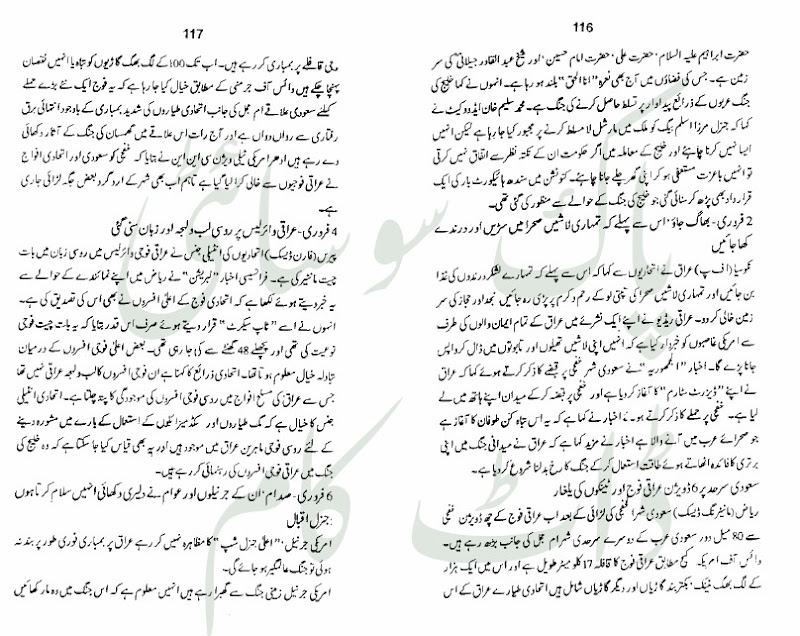 116
حضرت ابراہیم علیہ السلام ' حضرت علی ' حضرت امام حسین ' اور شیخ عبدالقادر جیلانی کی سر
زمین ہے۔ جس کی فضاؤں میں آج بھی نعرہ "انا الحق" بلند ہو رہا ہے۔ انہوں نے کہا خلیج کی
جنگ عربوں کے ذرائع پیداوار پر تسلط حاصل کرنے کی جنگ ہے۔ محمد سلیم خان ایڈووکیٹ نے
کہا کہ جنرل مرزا اسلم بیگ کو ملک میں مارشل لا مسلط کرنے پر مجبور کیا جا رہا ہے لیکن انہیں
ایسا نہیں کرنا چاہئے اور خلیج کے معاملہ میں اگر حکومت ان کے نکتہ نظر سے اتفاق نہیں کرتی
تو انہیں باعزت مستعفی ہو کر اپنی گھر چلے جانا چاہئے۔ کنونشن میں سندھ ہائیکورٹ بار کی ایک
قرارداد بھی پڑھ کر سنائی گئی جو خلیج کی جنگ کے حوالے سے منظور کی گئی تھی۔
2 فروری۔ بھاگ جاؤ ' اس سے پہلے کہ تمہاری لاشیں صحرا میں سڑیں اور درندے
کھا جائیں
نکوسیا (اف پ) عراق نے اتحادیوں سے کہا کہ اس سے پہلے کہ تمہارے لشکر درندوں کی غذا
بن جائیں اور تمہاری لاشیں صحرا کی تپتی لو کے رحم و کرم پر پڑی رہ جائیں نجد اور حجاز کی سر
زمین خالی کر دو۔ عراقی ریڈیو نے اپنے ایک نشریے میں عراق کے تمام ایمان والوں کی طرف
سے امریکی غاصبوں کو خبردار کیا ہے کہ انہیں اپنی لاشیں تھیلوں اور تابوتوں میں ڈال کر واپس
جانا پڑے گا۔ اخبار "الجمہوریہ" نے سعودی شہر خفجی پر قبضے کا ذکر کرتے ہوئے کہا کہ عراق
نے اپنے "ڈیزرٹ سٹارم" کا آغاز کر دیا ہے اور خفجی پر قبضہ کر کے میدان اپنے ہاتھ میں لے
لیا ہے۔ خفجی پر حملے کا ذکر کرتے ہوئے اخبار نے کہا ہے کہ یہ اس تباہ کن طوفان کا آغاز ہے
جو صحرائے عرب میں آنے والا ہے اخبار نے مزید کہا ہے کہ عراق نے میدانی جنگ میں اپنی
برتری کا فائدہ اٹھاتے ہوئے طاقت استعمال کر کے جنگ کا رخ بدلنا شروع کر دیا ہے۔
سعودی سرحد پر 6 ڈویژن عراقی فوج اور ٹینکوں کی یلغار
ریاض (مانیٹرنگ ڈیسک) سعودی شہر الخفجی کی لڑائی کے بعد اب عراقی فوج کے چھ ڈویژن خفجی
سے 80 میل دور سعودی عرب کے دوسرے سرحدی شہر ام جمل کی جانب بڑھ رہے ہیں۔
وائس آف امریکہ کے مطابق عراقی فوج کا قافلہ 17 کلو میٹر طویل ہے اور اس میں ایک ہزار
کے لگ بھگ ٹینک ' بکتر بند گاڑیاں اور دیگر گاڑیاں شامل ہیں اتحادی طیارے عراق کے اس
117
فوجی قافلے پر بمباری کر رہے ہیں۔ اب تک 100 کے لگ بھگ گاڑیوں کو تباہ یا انہیں نقصان
پہنچا چکے ہیں وائس آف جرمنی کے مطابق خیال کیا جا رہا ہے کہ یہ فوج ایک نئے بڑے حملے
کیلئے سعودی علاقے ام جمل کی جانب اتحادی طیاروں کی شدید بمباری کے باوجود انتہائی برق
رفتاری سے رواں دواں ہے اور آج رات اس علاقے میں گھمسان کی جنگ کے آثار دکھائی
دے رہے ہیں ادھر امریکی ٹیلی ویژن سی این این نے بتایا کہ خفجی کو سعودی اور اتحادی افواج
نے عراقی فوجیوں سے خالی کرا لیا گیا ہے تاہم اب بھی شہر کے ارد گرد بعض جگہ لڑائی جاری
ہے۔
4 فروری۔ عراقی وائرلیس پر روسی لب و لہجہ اور زبان سنی گئی
پیرس (فارن ڈیسک) اتحادیوں کی انٹیلی جنس نے عراقی فوجی وائرلیس میں روسی زبان میں بات
چیت مانیٹر کی ہے۔ فرانسیسی اخبار "لبریشن" نے ریاض میں اپنے نمائندے کے حوالے سے
یہ خبر دیتے ہوئے لکھا ہے کہ اتحادی فوج کے اعلیٰ افسروں نے بھی اس کی تصدیق کی ہے۔
انہوں نے اسے "ٹاپ سیکرٹ" قرار دیتے ہوئے صرف اس قدر بتایا کہ یہ بات چیت فوجی
نوعیت کی تھی اور پچھلے 48 گھنٹے سے کی جا رہی تھی۔ بعض اعلیٰ فوجی افسروں کے درمیان
تبادلہ خیال معلوم ہوتا تھا۔ اتحادی ذرائع کا کہنا ہے ان فوجی افسروں کا لب و لہجہ عراقی نہیں تھا
جس سے عراق کی مسلح افواج میں روسی فوجی افسروں کی موجودگی کا پتہ چلتا ہے۔ اتحادی انٹیلی
جنس کا خیال ہے کہ مگ طیاروں اور سکڈ میزائلوں کے استعمال کے بارے میں مشورہ دینے
کے لئے روسی فوجی ماہرین عراق میں موجود ہیں اور یہ بھی قیاس کیا جا سکتا ہے کہ وہ خلیج کی
جنگ میں عراقی فوجی افسروں کی رہنمائی کر رہے ہیں۔
6 فروری۔ صدام ' ان کے جرنیلوں اور عوام نے دلیری دکھائی انہیں سلام کرتا ہوں
: جنرل اقبال
امریکی جرنیل ' "اعلیٰ جنرل شپ" کا مظاہرہ نہیں کر رہے عراق پر بمباری فوری طور پر بند نہ
ہوئی تو جنگ عالمگیر ہو جائے گی۔
امریکی جرنیل زمینی جنگ سے گھبرا رہے ہیں انہیں معلوم ہے کہ اس جنگ میں وہ مار کھائیں
پاک سوسائٹی
ڈاٹ کام